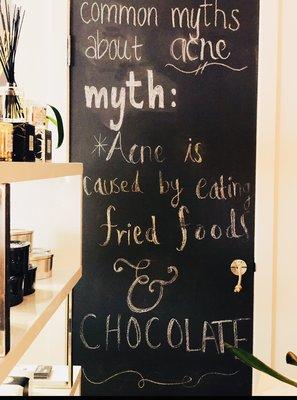 common myths
about acne
myth:
*Acne is
caused by eating
fried foods
&
CHOCOLATE